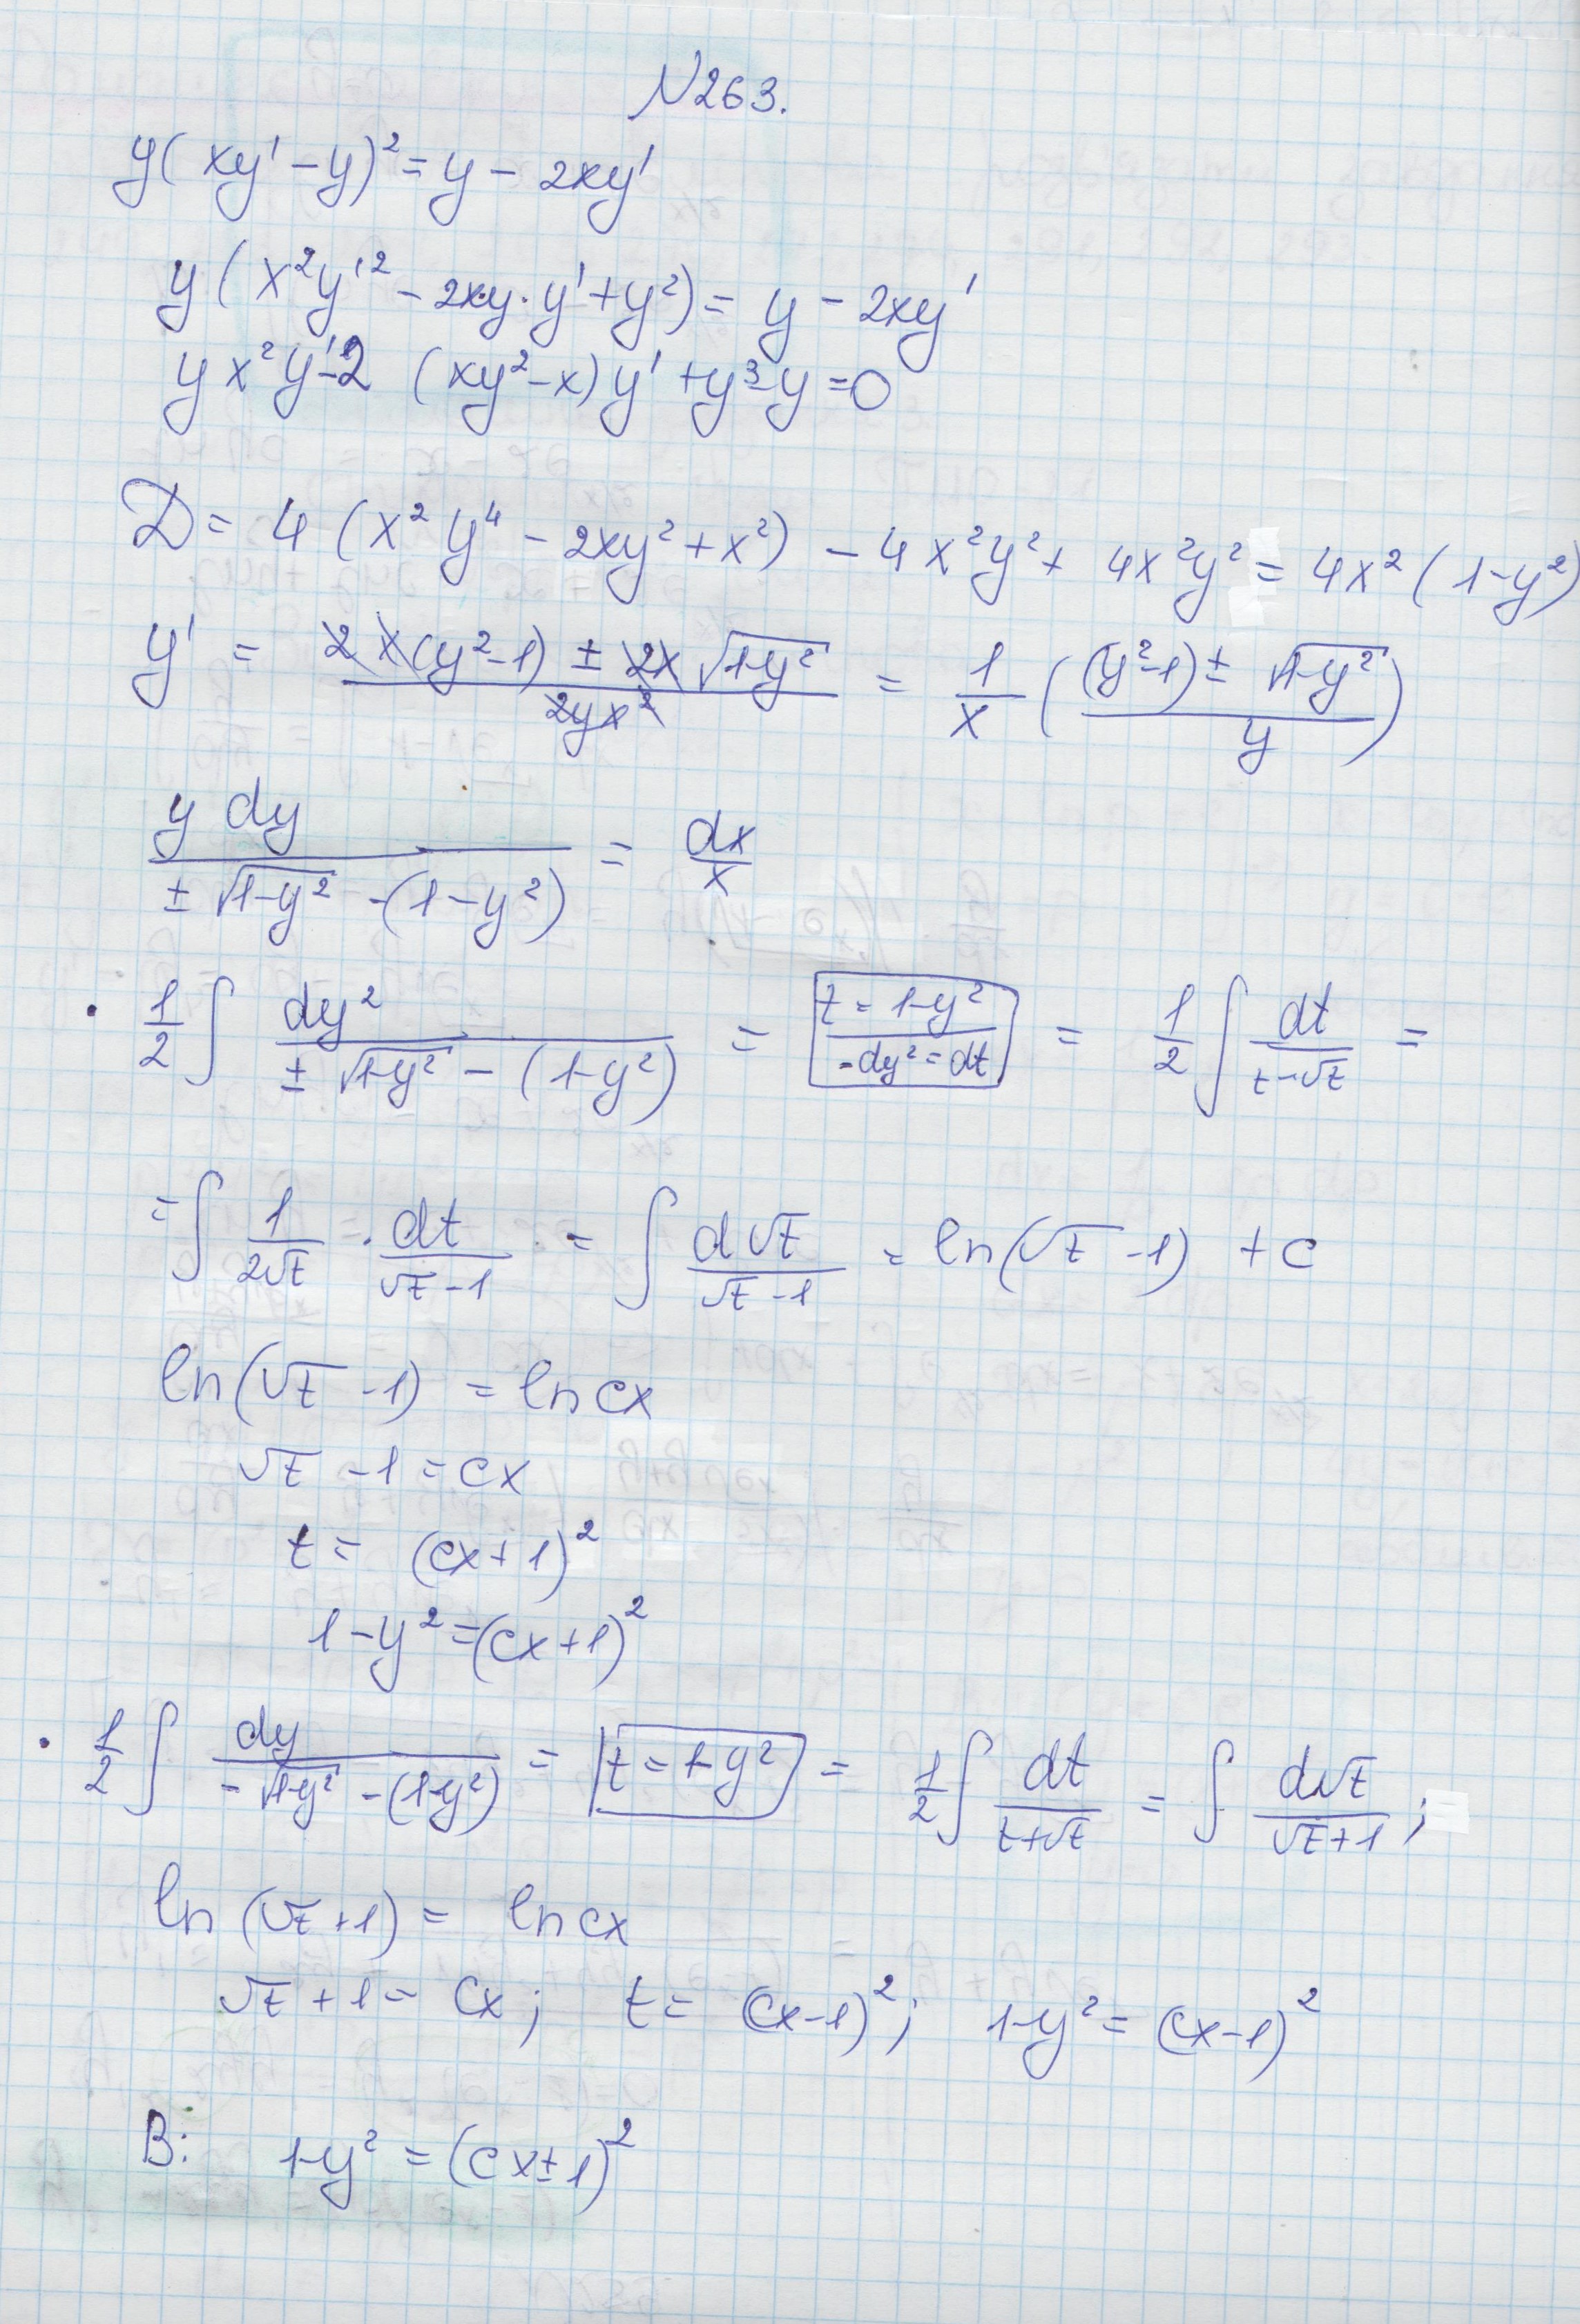 N263.
y(xy' - y)² = y - 2xy'
y(x²y'² - 2xy·y' + y²) = y - 2xy'
yx²y'-2 (xy² - x)y' + y³ - y = 0
D = 4(x²y⁴ - 2xy² + x²) - 4x²y² + 4x²y² = 4x²(1-y²)
y' = (2x(y²-1) ± 2x√(1-y²))/(2yx²) = 1/x ( ((y²-1) ± √(1-y²))/y )
y dy/(± √(1-y²) - (1-y²)) = dx/x
· 1/2 ∫ dy²/(± √(1-y²) - (1-y²)) = | t = 1-y² / -dy² = dt | = 1/2 ∫ dt/(t-√t) =
= ∫ 1/(2√t) · dt/(√t -1) = ∫ d√t/(√t -1) = ln(√t -1) + c
ln(√t -1) = ln cx
√t -1 = cx
t = (cx+1)²
1-y² = (cx+1)²
· 1/2 ∫ dy/(-√(1-y²) - (1-y²)) = | t = 1-y² | = 1/2 ∫ dt/(t+√t) = ∫ d√t/(√t+1);
ln(√t +1) = ln cx
√t +1 = cx; t = (cx-1)²; 1-y² = (cx-1)²
В: 1-y² = (cx±1)²